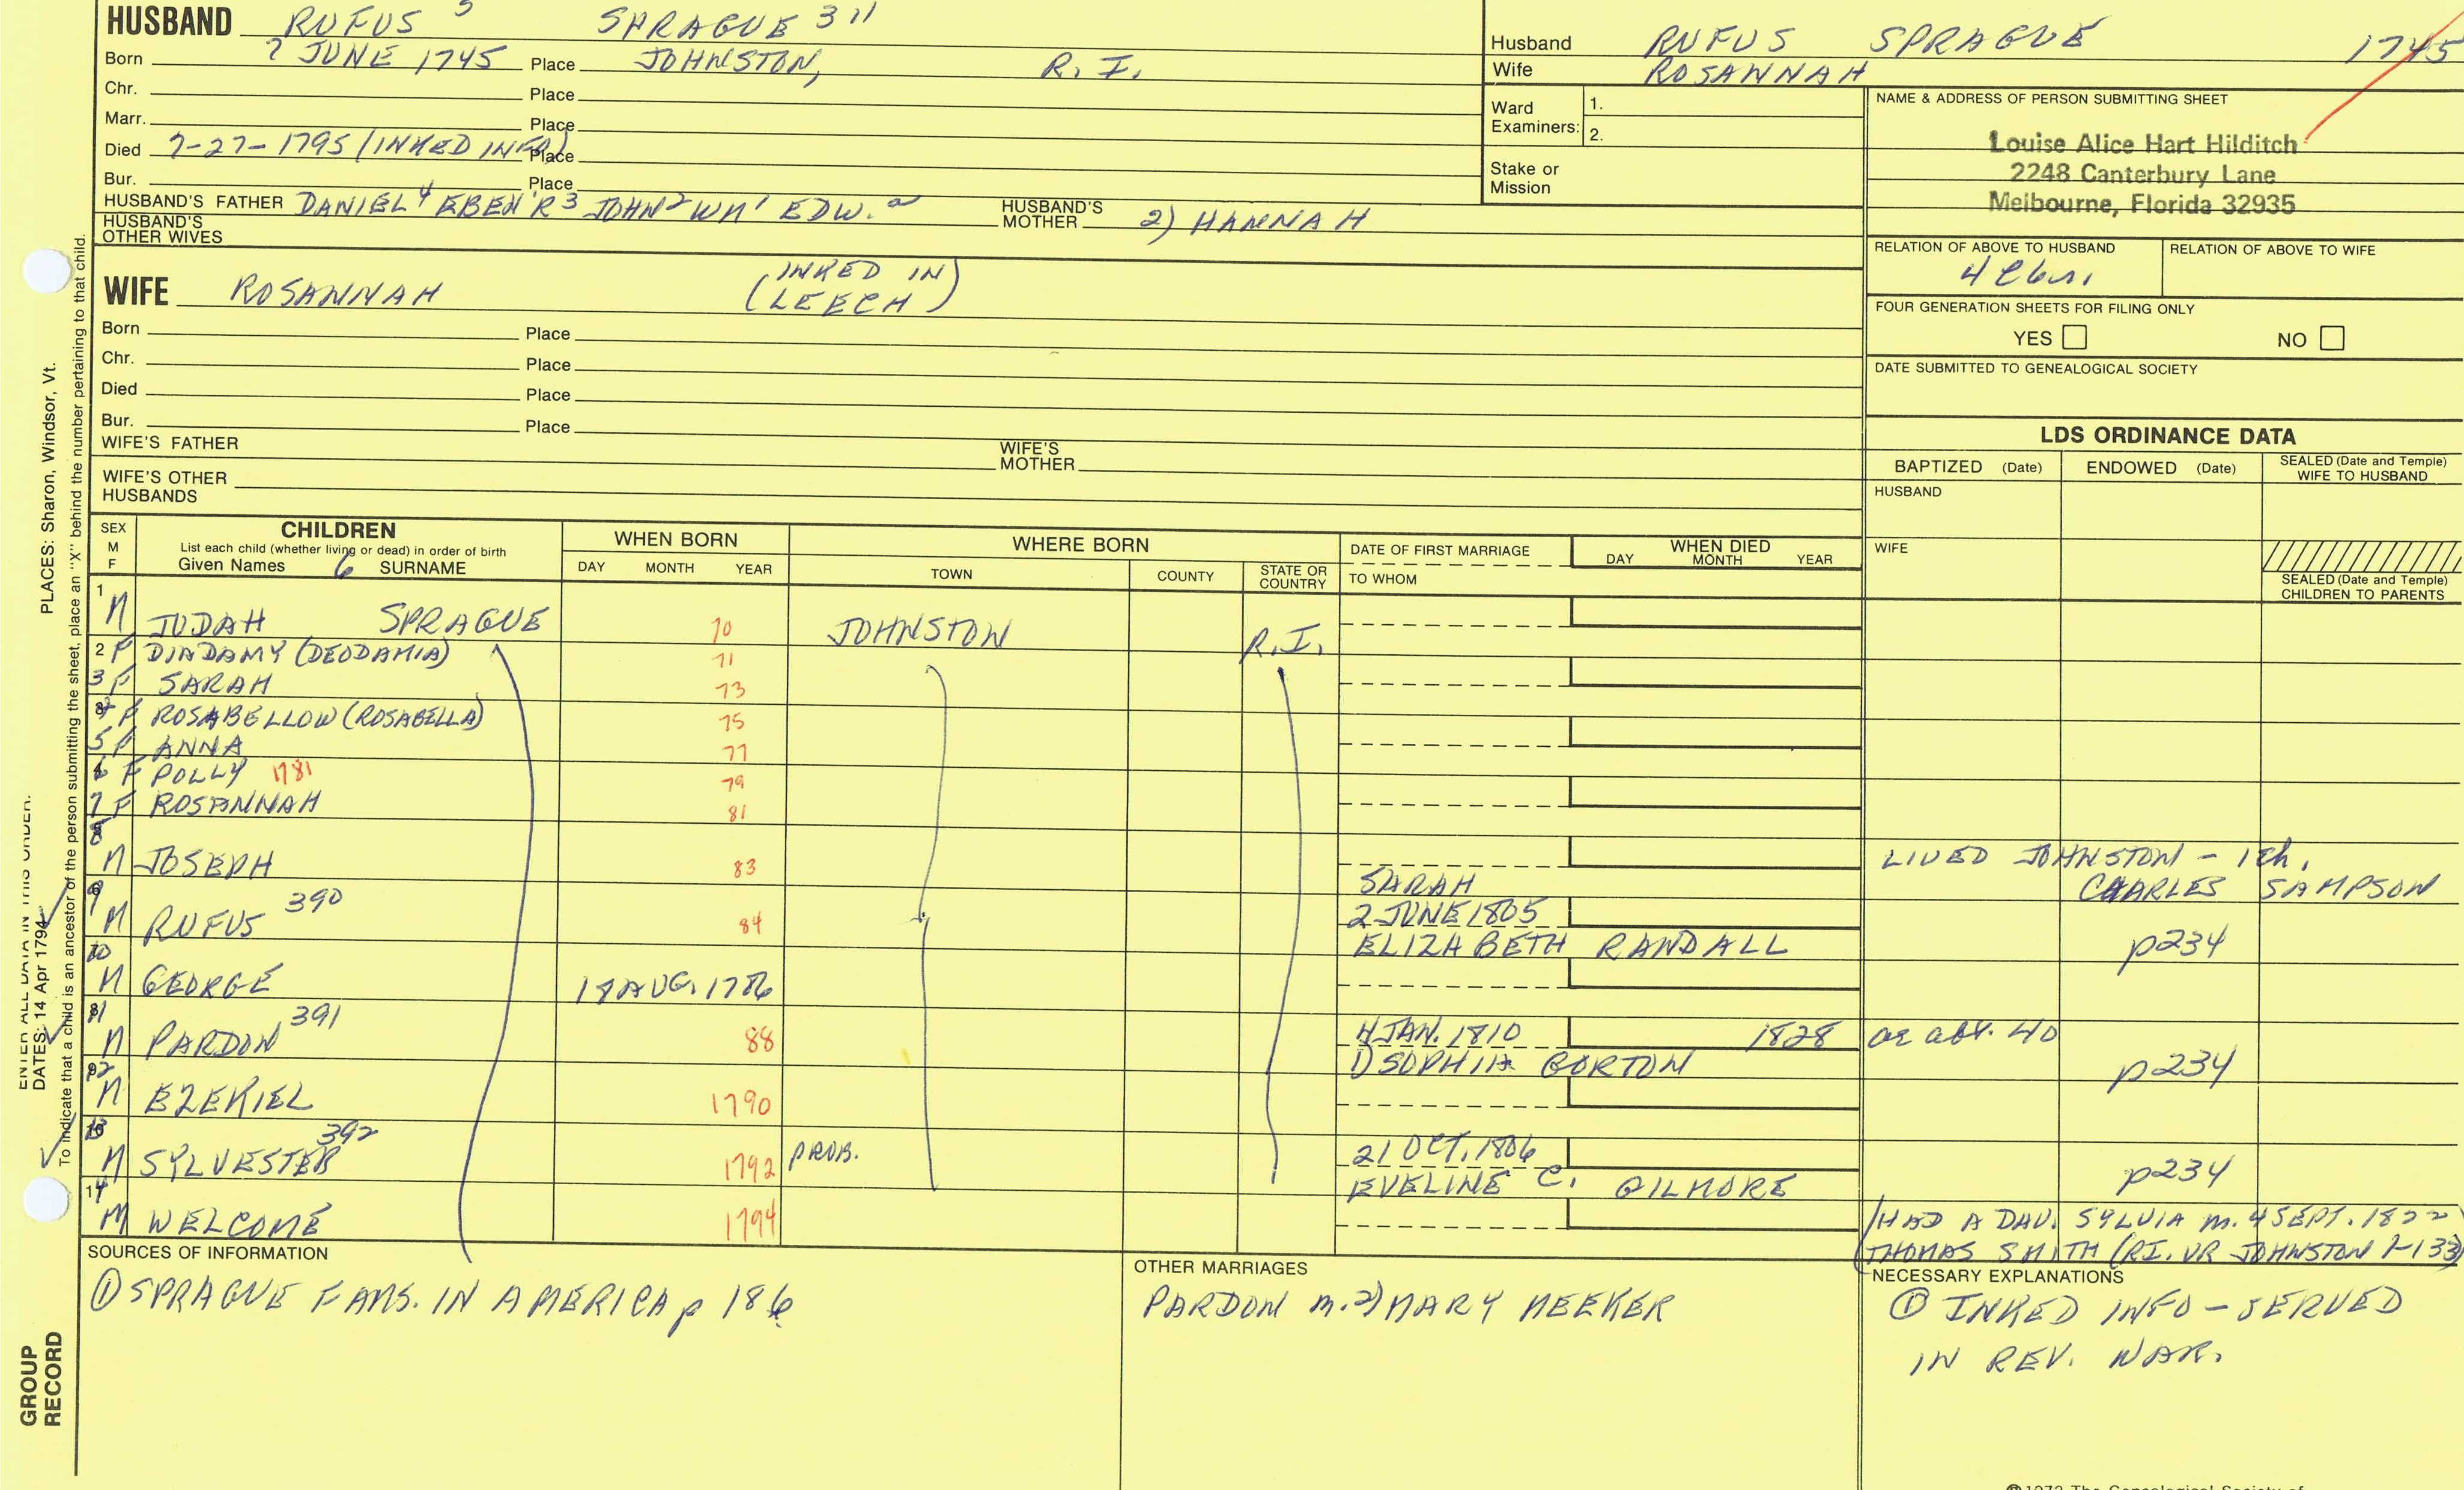 HUSBAND RUFUS 5 SPRAGUE 311
Born 7 JUNE 1745 Place JOHNSTON, R.I.
Chr. Place
Marr. Place
Died 7-27-1795 (INKED INFO) Place
Bur. Place
HUSBAND'S FATHER DANIEL 4 EBEN'R 3 JOHN 2 WM 1 EDW. a HUSBAND'S MOTHER 2) HANNAH
HUSBAND'S OTHER WIVES
Husband RUFUS SPRAGUE 1745
Wife ROSANNAH
Ward Examiners: 1.
2.
Stake or Mission
NAME & ADDRESS OF PERSON SUBMITTING SHEET
Louise Alice Hart Hilditch
2248 Canterbury Lane
Melbourne, Florida 32935
RELATION OF ABOVE TO HUSBAND RELATION OF ABOVE TO WIFE
FOUR GENERATION SHEETS FOR FILING ONLY
YES NO
DATE SUBMITTED TO GENEALOGICAL SOCIETY
WIFE ROSANNAH (INKED IN)
(LEECH)
Born Place
Chr. Place
Died Place
Bur. Place
WIFE'S FATHER WIFE'S MOTHER
WIFE'S OTHER HUSBANDS
LDS ORDINANCE DATA
BAPTIZED (Date) ENDOWED (Date) SEALED (Date and Temple) WIFE TO HUSBAND
HUSBAND
WIFE
SEALED (Date and Temple) CHILDREN TO PARENTS
SEX M F
CHILDREN
List each child (whether living or dead) in order of birth
Given Names 6 SURNAME
WHEN BORN
DAY MONTH YEAR
WHERE BORN
TOWN COUNTY STATE OR COUNTRY
DATE OF FIRST MARRIAGE
TO WHOM
WHEN DIED
DAY MONTH YEAR
1 M JUDAH SPRAGUE 70 JOHNSTON R.I.
2 F DINDAMY (DEODAMIA) 71
3 F SARAH 73
4 F ROSABELLOW (ROSABELLA) 75
5 F ANNA 77
6 F POLLY 1781 79
7 F ROSANNAH 81
8 M JOSEPH 83 SARAH LIVED JOHNSTON - 1 ch. CHARLES SAMPSON
9 M RUFUS 390 84 2 JUNE 1805
ELIZABETH RANDALL p234
10 M GEORGE AUG. 1786
11 M PARDON 391 88 4 JAN. 1810 1828 ae abt. 40
1) SOPHIA GORTON p234
12 M EZEKIEL 1790
13 M SYLVESTER 392 1792 PROB. 21 OCT. 1806
EVELINE C. GILMORE p234
14 M WELCOME 1794
(HAD A DAU. SYLVIA m. 4 SEPT. 1822
THOMAS SMITH (RI. VR JOHNSTON 1-133)
SOURCES OF INFORMATION
① SPRAGUE FAMS. IN AMERICA p 186
OTHER MARRIAGES
PARDON m. 2) MARY MEEKER
NECESSARY EXPLANATIONS
① INKED INFO - SERVED
IN REV. WAR.
ENTER ALL DATA IN THIS ORDER:
DATES: 14 Apr 1794
PLACES: Sharon, Windsor, Vt.
To indicate that a child is an ancestor of the person submitting the sheet, place an "X" behind the number pertaining to that child.
GROUP RECORD
©1972 The Genealogical Society of